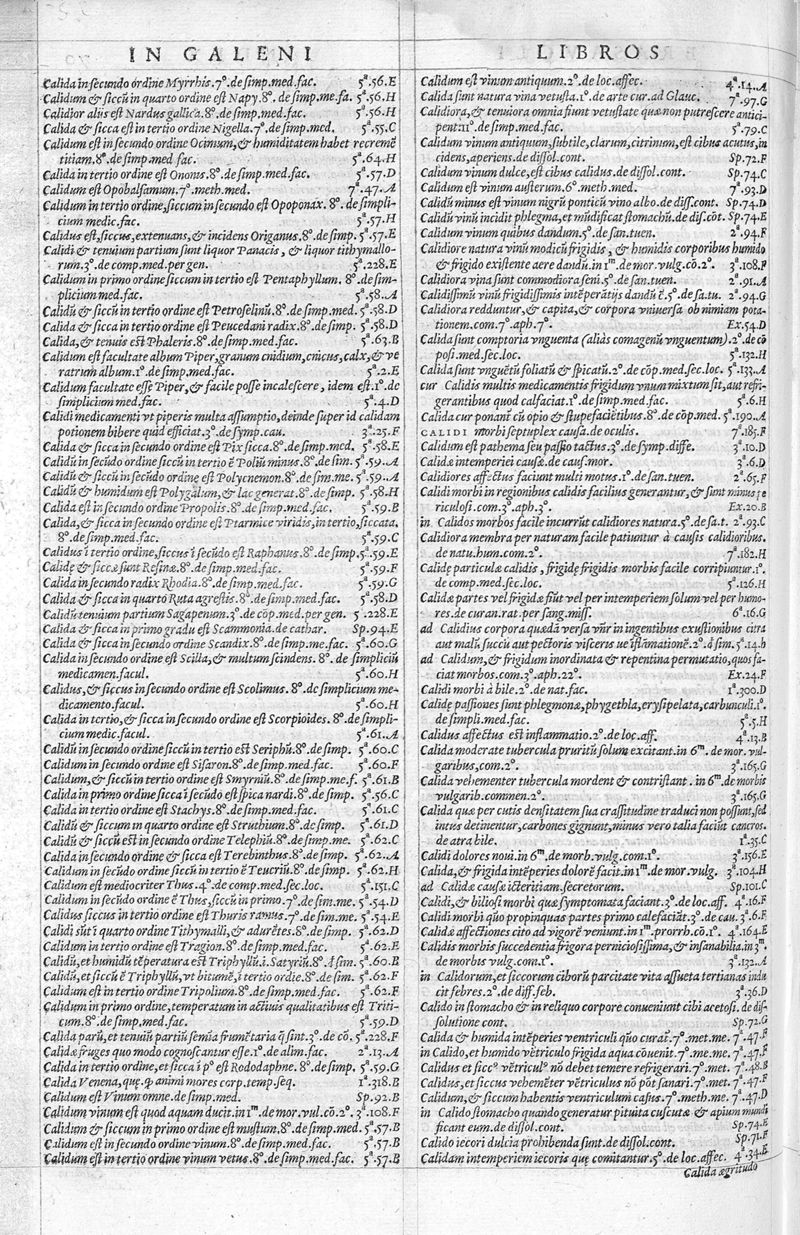 IN GALENI
Calida in secundo ordine Myrrhis.7°.de simp.med.fac. 5ª.56.E
Calidum & siccū in quarto ordine est Napy.8°. de simp.me.fa. 5ª.56.H
Calidior aliis est Nardus gallica.8°.de simp.med.fac. 5ª.56.H
Calida & sicca est in tertio ordine Nigella.7°.de simp.med. 5ª.55.C
Calidum est in secundo ordine Ocimum, & humiditatem habet recremē
titiam.8°.de simp.med fac. 5ª.64.H
Calida in tertio ordine est Ononis.8°.de simp.med.fac. 5ª.57.D
Calidum est Opobalsamum.7°.meth.med. 7ª.47.A
Calidum in tertio ordine, siccum in secundo est Opoponax. 8°.de simpli-
cium medic.fac. 5ª.57.H
Calidus est, siccus, extenuans, & incidens Origanus.8°.de simp. 5ª.57.E
Calidi & tenuium partium sunt liquor Panacis, & liquor tithymallo-
rum.3°.de comp.med.per gen. 5ª.228.E
Calidum in primo ordine siccum in tertio est Pentaphyllum. 8°.de sim-
plicium med.fac. 5ª.58.A
Calidū & siccū in tertio ordine est Petroselinū.8°.de simp.med. 5ª.58.D
Calida & sicca in tertio ordine est Peucedani radix.8°.de simp. 5ª.58.D
Calida, & tenuis est Phaleris.8°.de simp.med.fac. 5ª.63.B
Calidum est facultate album Piper, granum cnidium, cnicus, calx, & ve
ratrum album.1°.de simp.med.fac. 5ª.2.E
Calidum facultate esse Piper, & facile posse incalescere, idem est.1°.de
simplicium med.fac. 5ª.4.D
Calidi medicamenti vt piperis multa assumptio, deinde super id calidam
potionem bibere quid efficiat.3°.de symp.cau. 3ª.25.F
Calida & sicca in secundo ordine est Pix sicca.8°.de simp.med. 5ª.58.E
Calidū in secūdo ordine siccū in tertio ē Poliū minus.8°.de sim. 5ª.59.A
Calidū & siccū in secūdo ordine est Polycnemon.8°.de sim.me. 5ª.59.A
Calidū & humidum est Polygalum, & lac generat.8°.de simp. 5ª.58.H
Calida est in secundo ordine Propolis.8°.de simp.med.fac. 5ª.59.B
Calida, & sicca in secundo ordine est Ptarmice viridis, in tertio, siccata,
8°.de simp.med.fac. 5ª.59.C
Calidus ī tertio ordine, siccus ī secūdo est Raphanus.8°.de simp.5ª.59.E
Calidę & siccæ sunt Resinæ.8°.de simp.med.fac. 5ª.59.F
Calida in secundo radix Rhodia.8°.de simp.med.fac. 5ª.59.G
Calida & sicca in quarto Ruta agrestis.8°.de simp.med.fac. 5ª.58.D
Calidū tenuium partium Sagapenum.3°.de cōp.med.per gen. 5.228.E
Calida & sicca in primo gradu est Scammonia.de cathar. Sp.94.E
Calida & sicca in secundo ordine Scandix.8°.de simp.me.fac. 5ª.60.G
Calida in secundo ordine est Scilla, & multum scindens. 8°. de simpliciū
medicamen.facul. 5ª.60.H
Calidus, & siccus in secundo ordine est Scolimus. 8°.de simplicium me-
dicamento.facul. 5ª.60.H
Calida in tertio, & sicca in secundo ordine est Scorpioides. 8°.de simpli-
cium medic.facul. 5ª.61.A
Calidū in secundo ordine siccū in tertio est Seriphū.8°.de simp. 5ª.60.C
Calidum in secundo ordine est Sisaron.8°.de simp.med.fac. 5ª.60.F
Calidum, & siccū in tertio ordine est Smyrniū.8°.de simp.me.f. 5ª.61.B
Calida in primo ordine sicca ī secūdo est spica nardi.8°.de simp. 5ª.56.C
Calida in tertio ordine est Stachys.8°.de simp.med.fac. 5ª.61.C
Calidū & siccum in quarto ordine est Struthium.8°.de simp. 5ª.61.D
Calidū & siccū est in secundo ordine Telephiū.8°.de simp.me. 5ª.62.C
Calida in secundo ordine & sicca est Terebinthus.8°.de simp. 5ª.62.A
Calidum in secundo ordine siccū in tertio ē Teucriū.8°.de simp. 5ª.62.H
Calidum est mediocriter Thus.4°.de comp.med.sec.loc. 5ª.151.C
Calidum in secundo ordine ē Thus, siccū in primo.7°.de sim.me. 5ª.54.D
Calidus siccus in tertio ordine est Thuris ramus.7°.de sim.me. 5ª.54.E
Calidi sūt ī quarto ordine Tithymalli, & adurētes.8°.de simp. 5ª.62.D
Calidum in tertio ordine est Tragion.8°.de simp.med.fac. 5ª.62.E
Calidū, et humidū tēperatura est Triphyllū.i.Satyriū.8°.d sim. 5ª.60.B
Calidū, et siccū ē Triphyllū, vt bitumē, ī tertio ordie.8°.de sim. 5ª.62.F
Calidum est in tertio ordine Tripolium.8°.de simp.med.fac. 5ª.62.F
Calidum in primo ordine, temperatum in actiuis qualitatibus est Triti-
cum.8°.de simp.med.fac. 5ª.59.D
Calida parū, et tenuiū partiū semīa frumētaria q̄ sint.3°.de cō. 5ª.228.F
Calidæ fruges quo modo cognoscantur esse.1°.de alim.fac. 2ª.13.A
Calida in tertio ordine, et sicca ī p° est Rododaphne. 8°.de simp. 5ª.59.G
Calida Venena, quę.ꝙ animi mores corp.temp.seq. 1ª.318.B
Calidum est Vinum omne.de simp.med. Sp.92.B
Calidum vinum est quod aquam ducit.in 1ᵐ.de mor.vul.cō.2°. 3ª.108.F
Calidum & siccum in primo ordine est mustum.8°.de simp.med. 5ª.57.B
Calidum est in secundo ordine vinum.8°.de simp.med.fac. 5ª.57.B
Calidum est in tertio ordine vinum vetus.8°.de simp.med.fac. 5ª.57.B
LIBROS
Calidum est vinum antiquum.2°.de loc.affec. 4ª.14.A
Calida sunt natura vina vetusta.1°.de arte cur.ad Glauc. 7ª.97.G
Calidiora, & tenuiora omnia fiunt vetustate quæ non putrescere antici-
pent.11°.de simp.med.fac. 5ª.79.C
Calidum vinum antiquum, subtile, clarum, citrinum, est cibus acutus, in
cidens, aperiens.de dissol.cont. Sp.72.F
Calidum vinum dulce, est cibus calidus.de dissol.cont. Sp.74.C
Calidum est vinum austerum.6°.meth.med. 7ª.93.D
Calidū minus est vinum nigrū ponticū vino albo.de diss.cont. Sp.74.D
Calidū vinū incidit phlegma, et mūdificat stomachū.de dis.cōt. Sp.74.E
Calidum vinum quibus dandum.5°.de san.tuen. 2ª.94.F
Calidiore natura vinū modicū frigidis, & humidis corporibus humido
& frigido existente aere dandū.in 1ᵐ.de mor.vulg.cō.2°. 3ª.108.F
Calidiora vina sunt commodiora seni.5°.de san.tuen. 2ª.91.A
Calidissimū vinū frigidissimis intēperātijs dandū ē.5°.de sa.tu. 2ª.94.G
Calidiora redduntur, & capita, & corpora vniuersa ob nimiam pota-
tionem.com.7°.aph.7°. Ex.54.D
Calida sunt comptoria vnguenta (aliàs comagenū vnguentum).2°.de cō
posi.med.sec.loc. 5ª.132.H
Calida sunt vnguētū foliatū & spicatū.2°.de cōp.med.sec.loc. 5ª.133.A
cur Calidis multis medicamentis frigidum vnum mixtum sit, aut refri-
gerantibus quod calfaciat.1°.de simp.med.fac. 5ª.6.H
Calida cur ponant cū opio & stupefaciētibus.8°.de cōp.med. 5ª.190.A
CALIDI morbi septuplex causa.de oculis. 7ª.185.F
Calidum est pathema seu passio tactus.3°.de symp.diffe. 3ª.10.D
Calidæ intemperiei causæ.de caus.mor. 3ª.6.D
Calidiores affectus faciunt multi motus.1°.de san.tuen. 2ª.65.F
Calidi morbi in regionibus calidis facilius generantur, & sunt minus pe
riculosi.com.3°.aph.3°. Ex.20.B
in Calidos morbos facile incurrūt calidiores natura.5°.de sa.t. 2ª.93.C
Calidiora membra per naturam facile patiuntur à causis calidioribus.
de natu.hum.com.2°. 7ª.182.H
Calidę particulæ calidis, frigidę frigidis morbis facile corripiuntur.1°.
de comp.med.sec.loc. 5ª.126.H
Calidæ partes vel frigidæ fiūt vel per intemperiem solum vel per humo-
res.de curan.rat.per sang.miss. 6ª.16.G
ad Calidius corpora quædā versa vn̄r in ingentibus exustionibus citra
aut malū succū aut pectoris visceris ue īflāmationē.2°.d sim.5ª.14.h
ad Calidum, & frigidum inordinata & repentina permutatio, quos fa-
ciat morbos.com.3°.aph.22°. Ex.24.F
Calidi morbi à bile.2°.de nat.fac. 1ª.300.D
Calidę passiones sunt phlegmonæ, phygethla, erysipelata, carbunculi.1°.
de simpli.med.fac. 5ª.5.H
Calidus affectus est inflammatio.2°.de loc.aff. 4ª.13.B
Calida moderate tubercula pruritū solum excitant.in 6ᵐ.de mor.vul-
garibus,com.2°. 3ª.165.G
Calida vehementer tubercula mordent & contristant . in 6ᵐ.de morbis
vulgarib.commen.2°. 3ª.165.G
Calida quæ per cutis densitatem sua crassitudine traduci non possunt, sed
intus detinentur, carbones gignunt, minus vero talia faciūt cancros.
de atra bile. 1ª.35.C
Calidi dolores noui.in 6ᵐ.de morb.vulg.com.1°. 3ª.156.E
Calida, & frigida intēperies dolorē facit.in 1ᵐ.de mor.vulg. 3ª.104.H
ad Calidæ causæ icteritiam.secretorum. Sp.101.C
Calidi, & biliosi morbi quæ symptomata faciant.3°.de loc.aff. 4ª.16.F
Calidi morbi quo propinquas partes primo calefaciāt.3°.de cau. 3ª.6.F
Calidæ affectiones cito ad vigorē veniunt.in 1ᵐ.prorrh.cō.1°. 4ª.164.E
Calidis morbis succedentia frigora perniciosissima, & insanabilia in 3ᵐ.
de morbis vulg.com.1°. 3ª.132.A
in Calidorum, et siccorum ciborū parcitate vita assueta tertianas indu
cit febres.2°.de diff.feb. 3ª.36.D
Calido in stomacho & in reliquo corpore conueniunt cibi acetosi.de dis-
solutione cont. Sp.72.G
Calida & humida intēperies ventriculi quō curat.7°.met.me. 7ª.47.F
in Calido, et humido vētriculo frigida aqua cōuenit.7°.me.me. 7ª.47.F
Calidus et sicc° vētricul° nō debet temere refrigerari.7°.met. 7ª.48.B
Calidus, et siccus vehemēter vētriculus nō pōt sanari.7°.met. 7ª.47.F
Calidum, & siccum habentis ventriculum casus.7°.meth.me. 7ª.47.D
in Calido stomacho quando generatur pituita cuscuta & apium mundi
ficant eum.de dissol.cont. Sp.74.E
Calido iecori dulcia prohibenda sunt.de dissol.cont. Sp.71.F
Calidam intemperiem iecoris quę comitantur.5°.de loc.affec. 4ª.34.E
Calida ægritudo